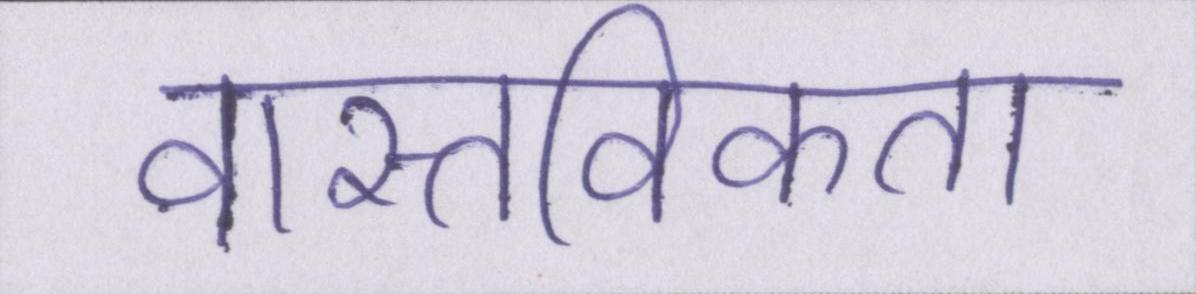 वास्तविकता